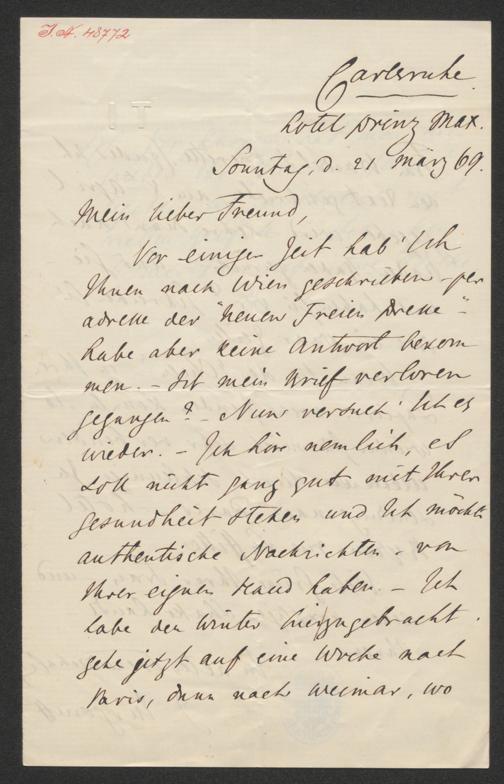 J.N. 48772
Carlsruhe.
Hotel Prinz Max.
Sonntag, d. 21 März 69.
Mein lieber Freund,
Vor einiger Zeit hab' Ich
Ihnen nach Wien geschrieben - per
adresse der "Neuen Freien Presse" -
habe aber keine Antwort bekom
men. - Ist mein Brief verloren
gegangen? - Nun versuch' Ich es
wieder. - Ich höre nemlich, es
soll nicht ganz gut mit Ihrer
Gesundheit stehen und Ich möchte
authentische Nachrichten - von
Ihrer eignen Hand haben. - Ich
habe den Winter hier zugebracht.
gehe jetzt auf eine Woche nach
Paris, dann nach Weimar, wo